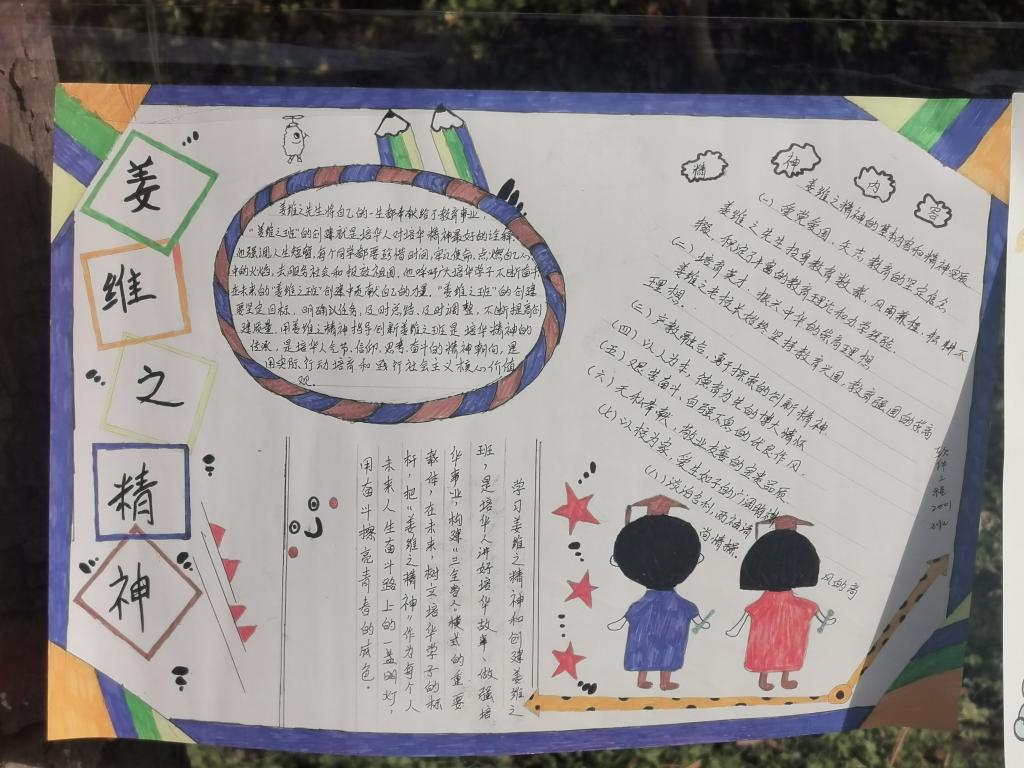 姜
维
之
精
神
姜维之先生将自己的一生都奉献给了教育事业，
“姜维之班”的创建就是培华人对培华精神最好的诠释，
他强调人生短暂，每个同学都要珍惜时间，牢记使命，点燃自己心
中的火焰，去服务社会和报效祖国，他呼吁大培华学子不断奋斗
在未来的“姜维之班”创建中贡献自己的力量。“姜维之班”的创建
要坚定目标、明确以任务，及时总结，及时调整，不断提高创
建质量，用姜维之精神指导创新姜维之班是培华精神的
，是培华人气节、信仰、思考、奋斗的精神朝向，是
用实际行动培育和践行社会主义核心价值
观。
精
神
内
容
姜维之精神的基本内容和精神实质
(一)爱党爱国，矢志教育的坚定信念
姜维之先生投身教育数载，风雨兼程，执耕不
辍，积淀了丰富的教育理论和办学经验。
(二)培育英才，振兴中华的崇高理想
姜维之老校长始终坚持教育兴国，教育强国的崇高
理想。
(三)产教融合，勇于探索的创新精神
(四)以人为本，德育为先的博大情怀
(五)艰苦奋斗，自强不息的优良作风
(六)无私奉献，敬业友善的宝贵品质
(七)以校为家，爱生如子的广阔胸襟
(八)淡泊名利，两袖清
风的高
尚情操
软
件
工
程
2001
班
学习姜维之精神和创建姜维之
班，是培华人讲好培华故事、做强培
华事业，构建“三全育人”模式的重要
载体，在未来，树立培华学子的标
杆，把“姜维之精神”作为每个人
未来人生奋斗路上的一盏明灯，
用奋斗擦亮青春的底色。